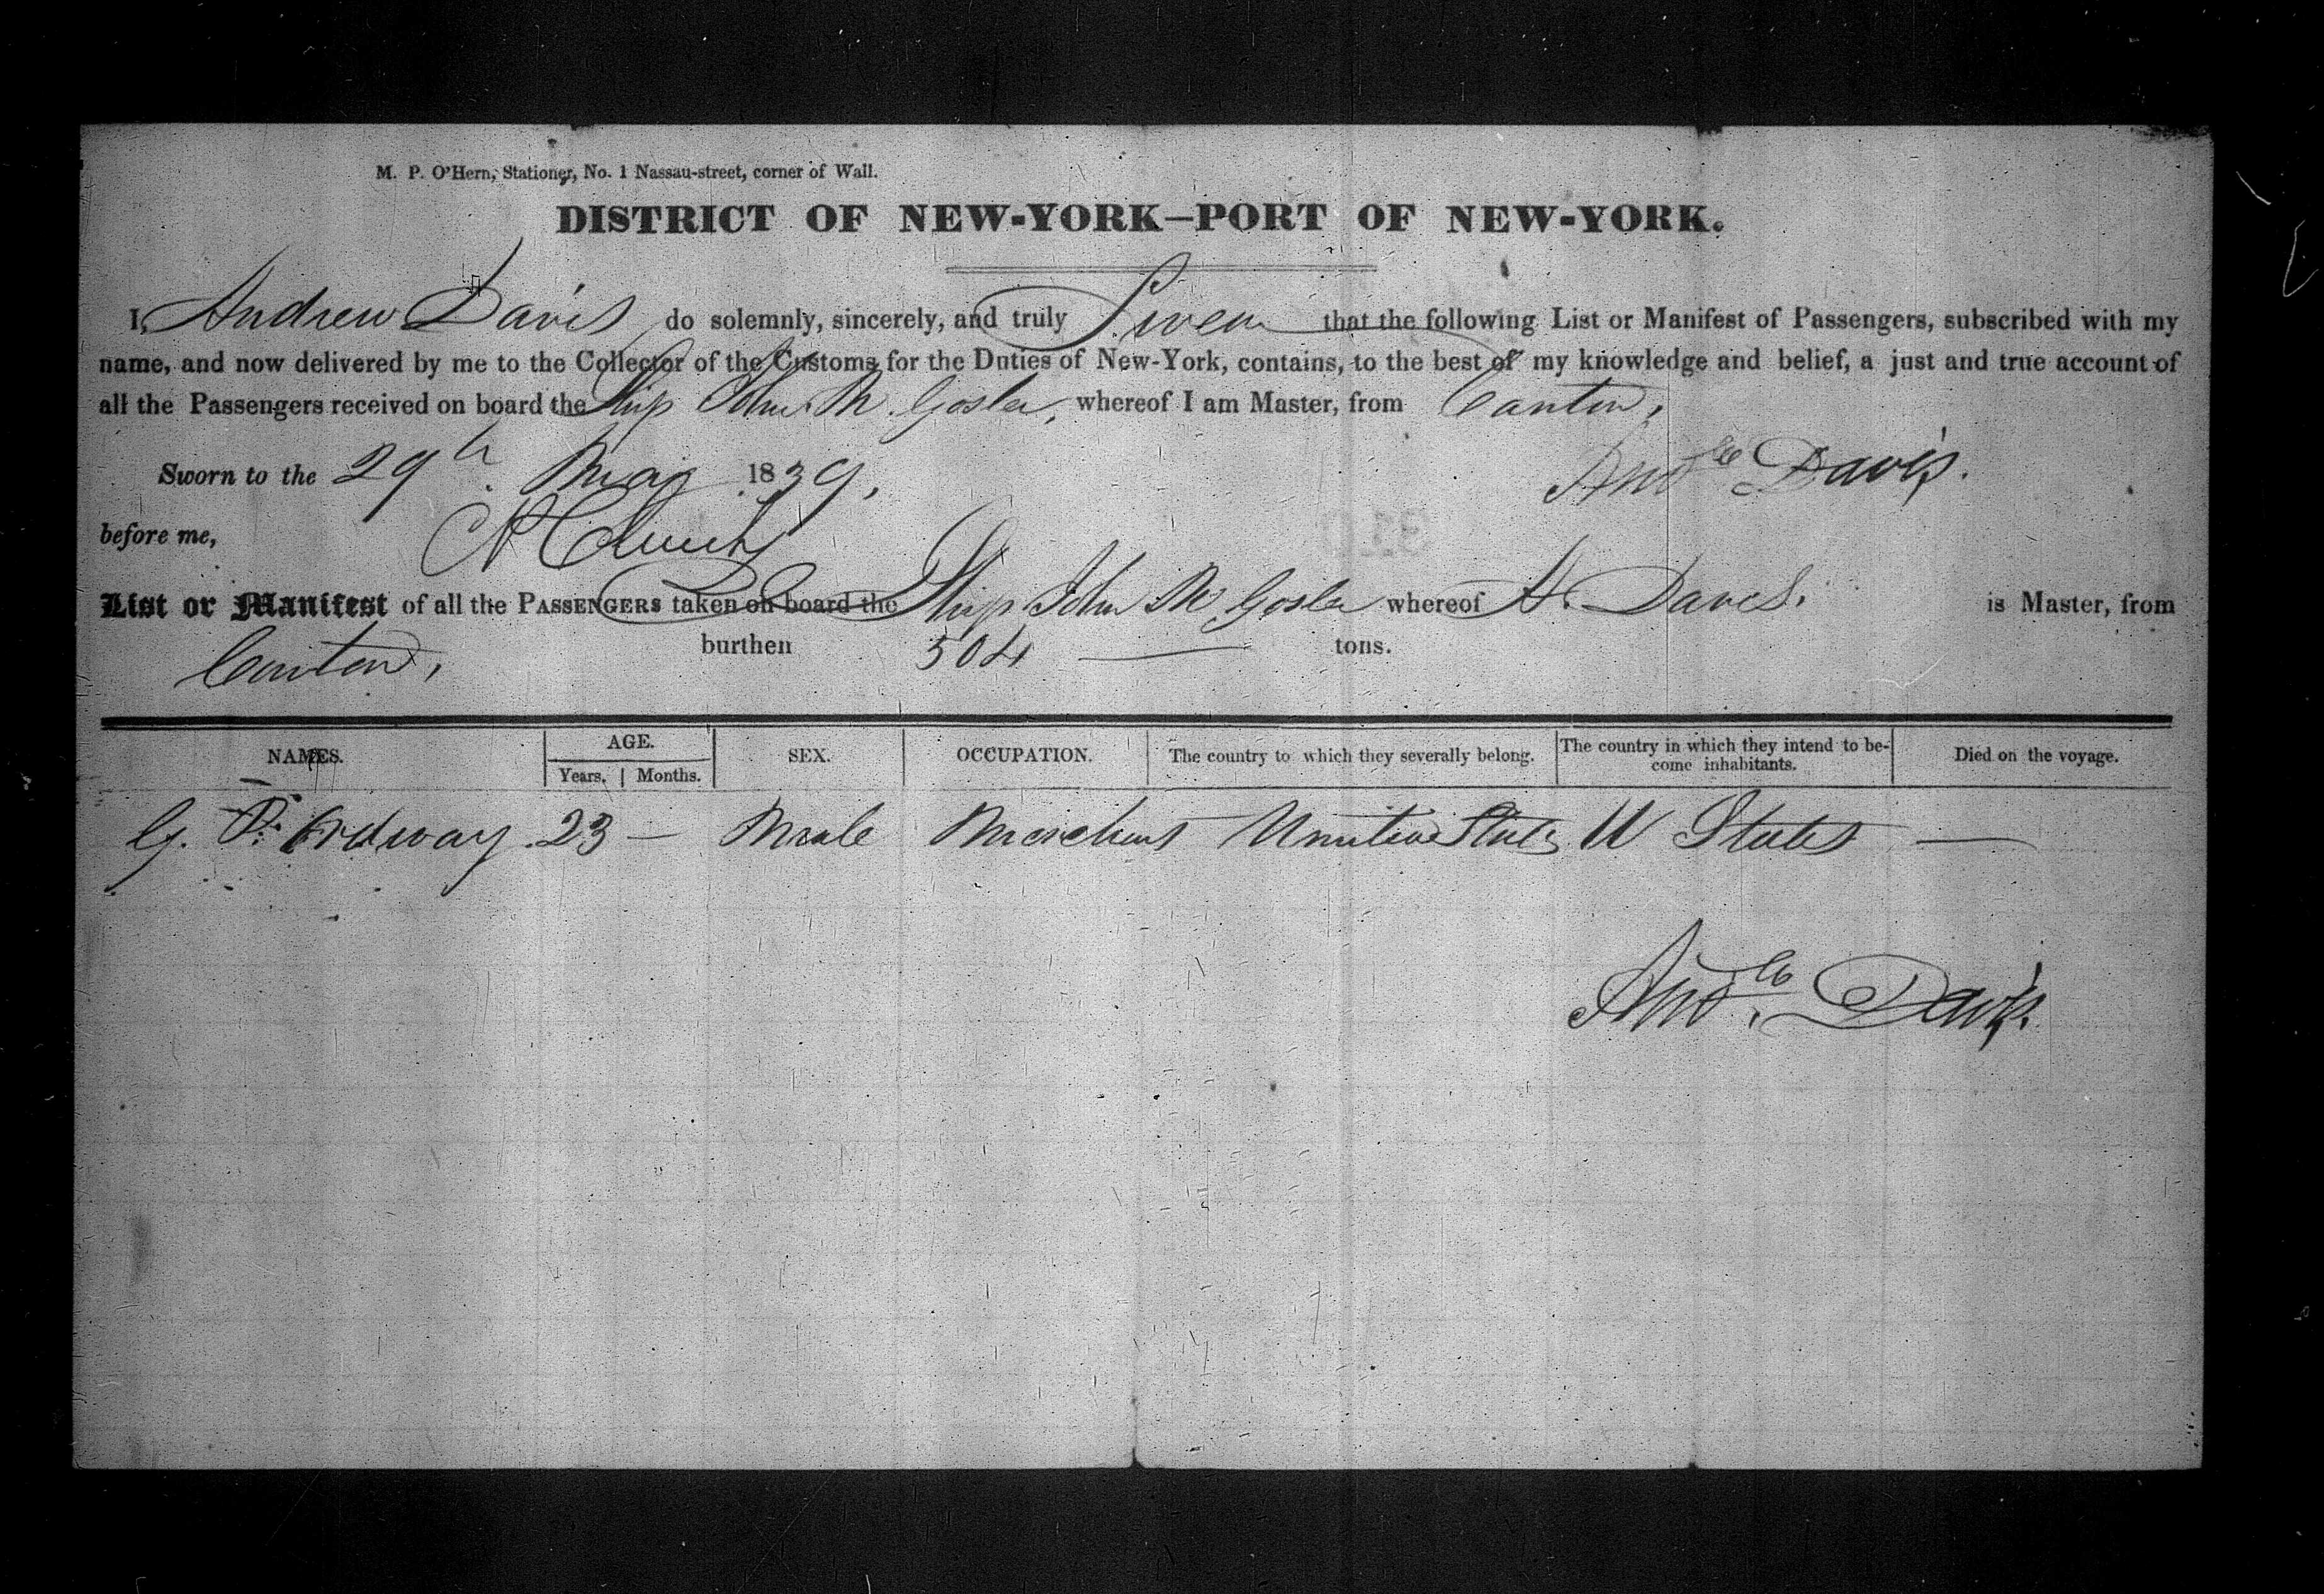 M. P. O'Hern, Stationer, No. 1 Nassau-street, corner of Wall.
DISTRICT OF NEW-YORK—PORT OF NEW-YORK.
I, Andrew Davis do solemnly, sincerely, and truly Swear that the following List or Manifest of Passengers, subscribed with my
name, and now delivered by me to the Collector of the Customs for the Duties of New-York, contains, to the best of my knowledge and belief, a just and true account of
all the Passengers received on board the Ship John M Gosler, whereof I am Master, from Canton,
Sworn to the 29th May 1839,
Andw Davis.
before me,
List or Manifest of all the PASSENGERS taken on board the Ship John M Gosler whereof A. Davis. is Master, from
Canton, burthen 504 tons.
NAMES. AGE. SEX. OCCUPATION. The country to which they severally belong. The country in which they intend to be-come inhabitants. Died on the voyage.
Years. Months.
G. P. Ordway 23 — Male Merchant United States U States —
Andw Davis.